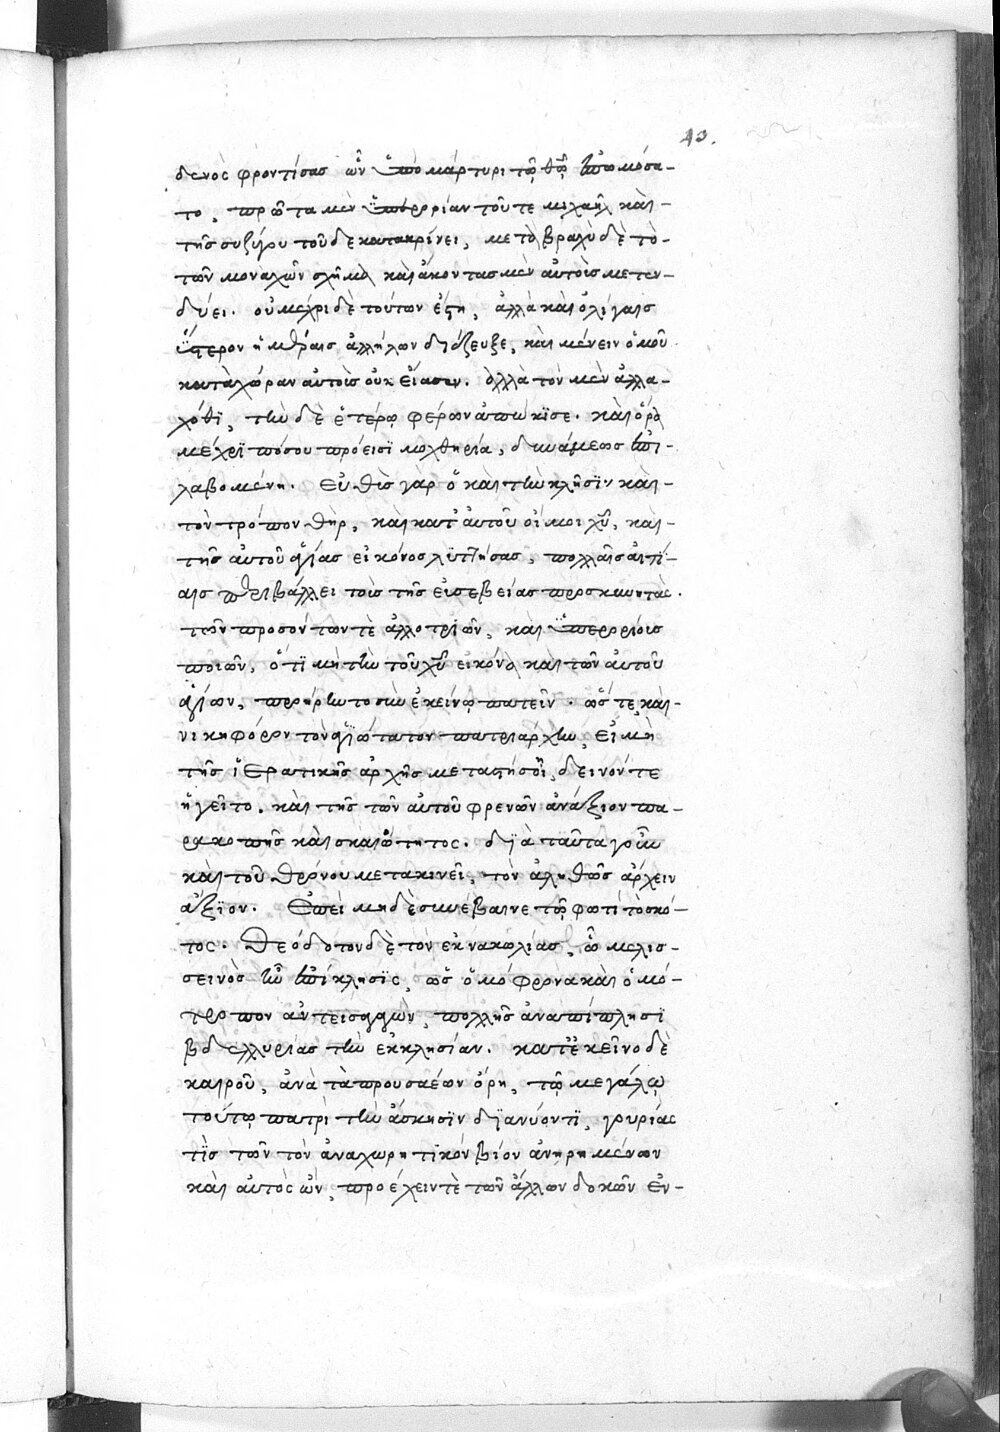 13.
δενὸς φροντίσας ὧν ὑπὸ μάρτυρι τῷ θῷ ἐπωμόσα-
το, πρῶτα μὲν ὑπερορίαν τοῦ τε μιχαὴλ καὶ-
τῆς συζύγου τοῦδε κατακρίνει, μετὰ βραχὺ δὲ τὸ-
τῶν μοναχῶν σχῆμα καὶ ἄκοντας μὲν αὐτοὺς μετεν-
δύει. οὐ μέχρι δὲ τούτων ἔστη, ἀλλὰ καὶ ὀλίγαις
ὕστερον ἡμέραις ἀλλήλων διέζευξε, καὶ μένειν ὁμοῦ
κατὰ χώραν αὐτοὺς οὐκ εἴασεν. ἀλλὰ τὸν μὲν ἀλλα-
χόθι, τὴν δὲ ἑτέρῳ φέρων ἀπῴκισε. καὶ ὅρα
μέχρι πόσου πρόεισι μοχθηρία, δυνάμεως ἐπι-
λαβομένη. Εὐθὺς γὰρ ὁ καὶ τὴν κλῆσιν καὶ-
τὸν τρόπον θὴρ, καὶ κατ' αὐτοῦ οἴμοι χυ, καὶ-
τῆς αὐτοῦ ἁγίας εἰκόνος λυττήσας, πολλαῖς αἰτί-
αις περιβάλλει τοὺς τῆς εὐσεβείας προσκυνητὰς.
τῶν προσόντων τὲ ἀλλοτριῶν, καὶ ὑπερορίους
ποιῶν, ὅτι μὴ τὴν τοῦ χυ εἰκόνα καὶ τῶν αὐτοῦ
ἁγίων, προῄρηντο σὺν ἐκείνῳ πατεῖν. ὥστε καὶ-
νικηφόρον τὸν ἁγιώτατον πατριάρχην, εἰ μὴ
τῆς ἱερατικῆς ἀρχῆς μεταστήσοι, δεινόν τε
ἡγεῖτο. καὶ τῆς τῶν αὐτοῦ φρενῶν ἀνάξιον πα-
ρακοπῆς καὶ σκαιότητος. διὰ ταῦτα γοῦν
καὶ τοῦ θρόνου μετακινεῖ, τὸν ἀληθῶς ἄρχειν
ἄξιον. Ἐπεὶ μηδὲ συνέβαινε τῷ φωτὶ τὸ σκό-
τος. Θεόδοτον δὲ τὸν ἐκ νακωλίας, ὧ μελισ-
σεινὸς ἦν ἐπίκλησις, ὡς ὁμόφρονα καὶ ὁμό-
τροπον ἀντεισαγαγὼν, πολλῆς ἀναπίπλησι
βδελλυρίας τὴν ἐκκλησίαν. κατ' ἐκεῖνο δὲ
καιροῦ, ἀνὰ τὰ προυσαέων ὄρη, τῷ μεγάλῳ
τούτῳ πατρὶ τὴν ἄσκησιν διανύοντι, γουρίας
τὶς τῶν τὸν ἀναχωρητικὸν βίον ἀνῃρημένων
καὶ αὐτὸς ὢν, προέχειν τὲ τῶν ἄλλων δοκῶν ἐν-